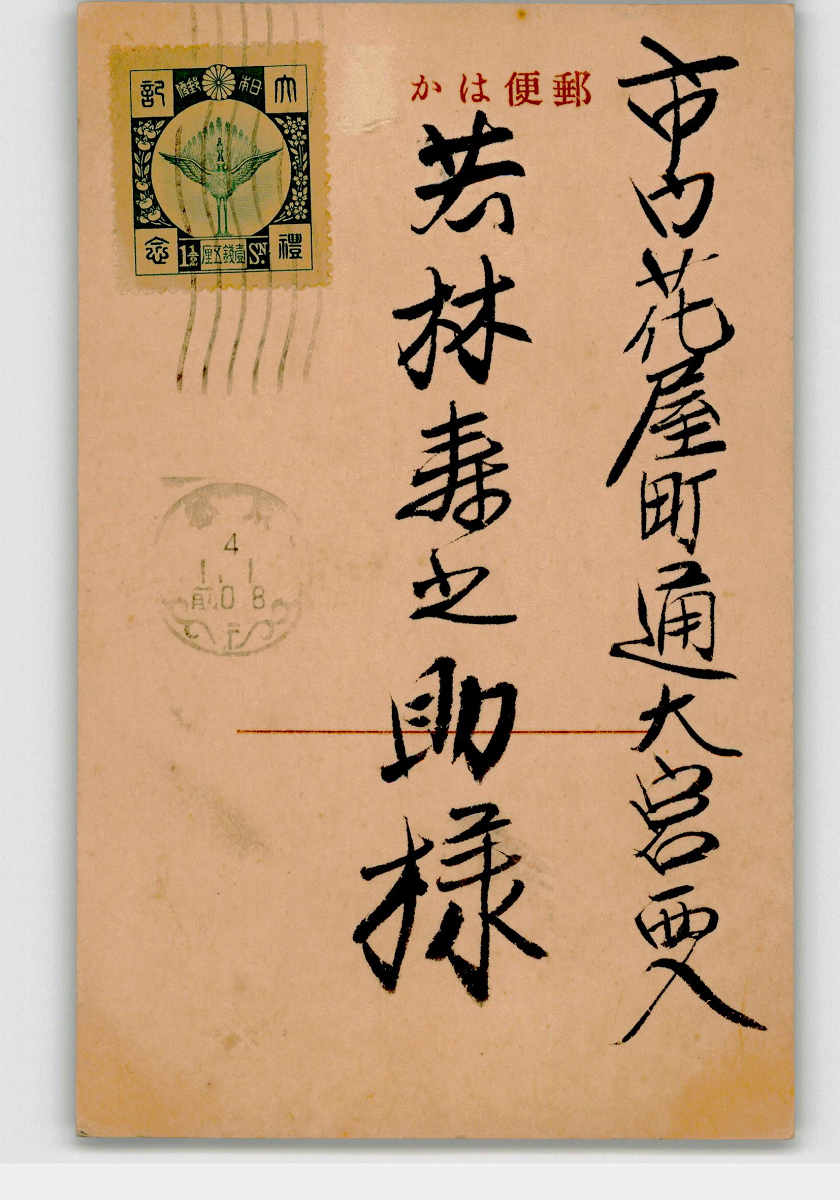 市内花屋町通大宮西入
郵便はか
若林寿之助様
大日本郵便記
禮念
1½ 壹錢五厘 SN
4
1.1
前0 8